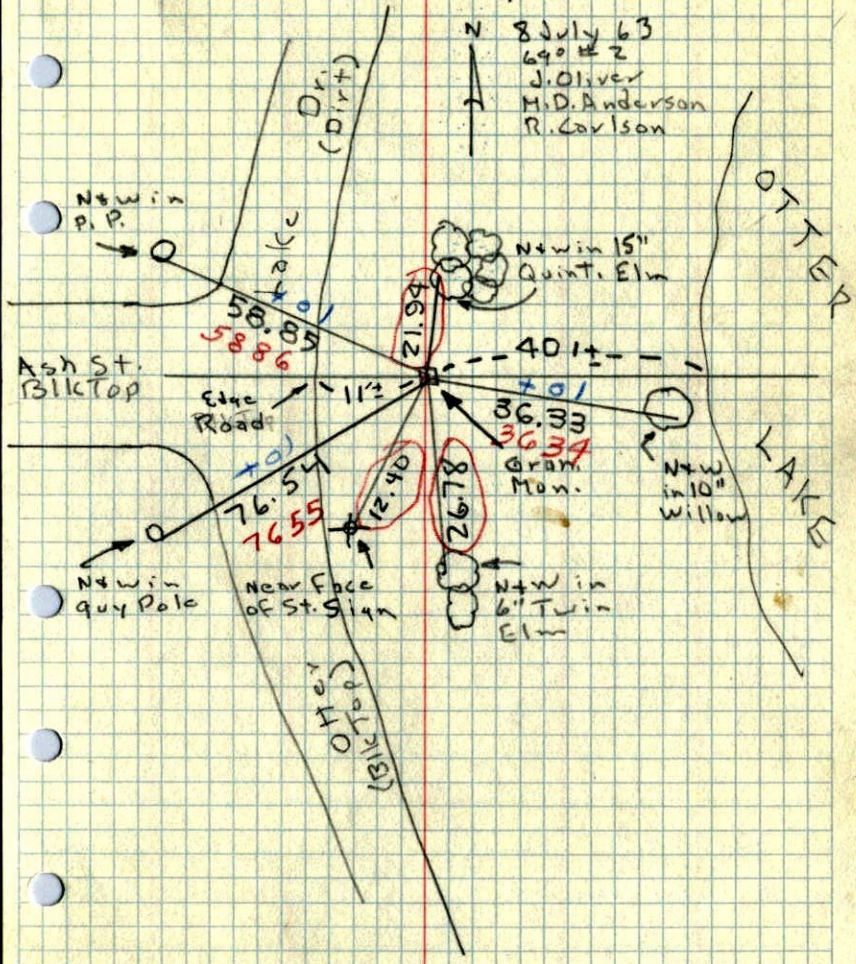 N
8 July 63
69° # 2
J. Oliver
M.D. Anderson
R. Carlson
Dr.
(Dirt)
Lake
OTTER
LAKE
N+W in
P. P.
N+W in 15"
Quint. Elm
+ 01
58.85
5886
21.94
40'±
Ash St.
BlkTop
Edge
Road
11'±
+ 01
36.33
3634
Gran.
Mon.
N+W
in 10"
Willow
+ 01
76.54
7655
12.40
26.78
N+W in
guy Pole
Near Face
of St. Sign
N+W in
6" Twin
Elm
Otter
(BlkTop)